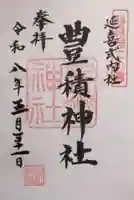 延喜式内社
奉拝
豊積神社
令和八年五月三十一日